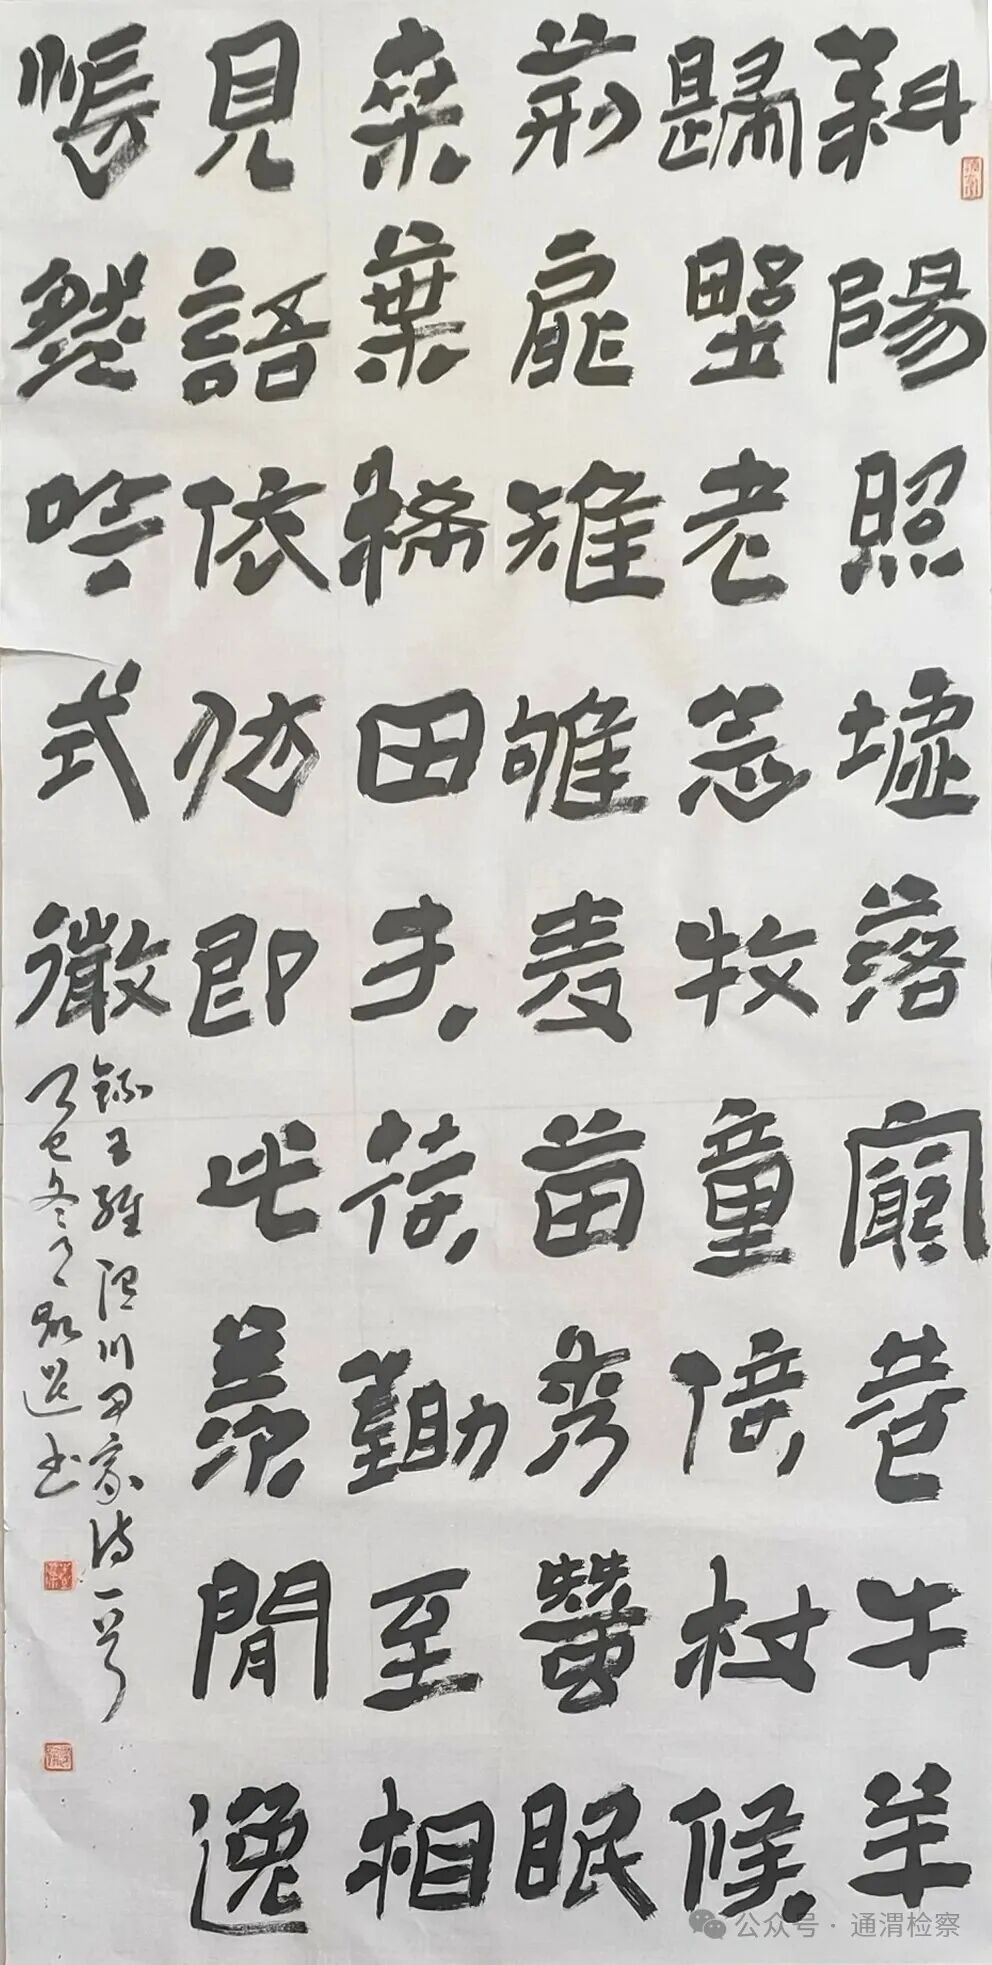 斜陽照墟落窮巷牛羊
歸野老念牧童倚杖候
荆扉雉雊麦苗秀蠶眠
桑葉稀田夫荷鋤至相
見語依依即此羨閒逸
悵然吟式微
錄王維渭川田家詩一首
乙巳冬月
书
公众号·通渭检察